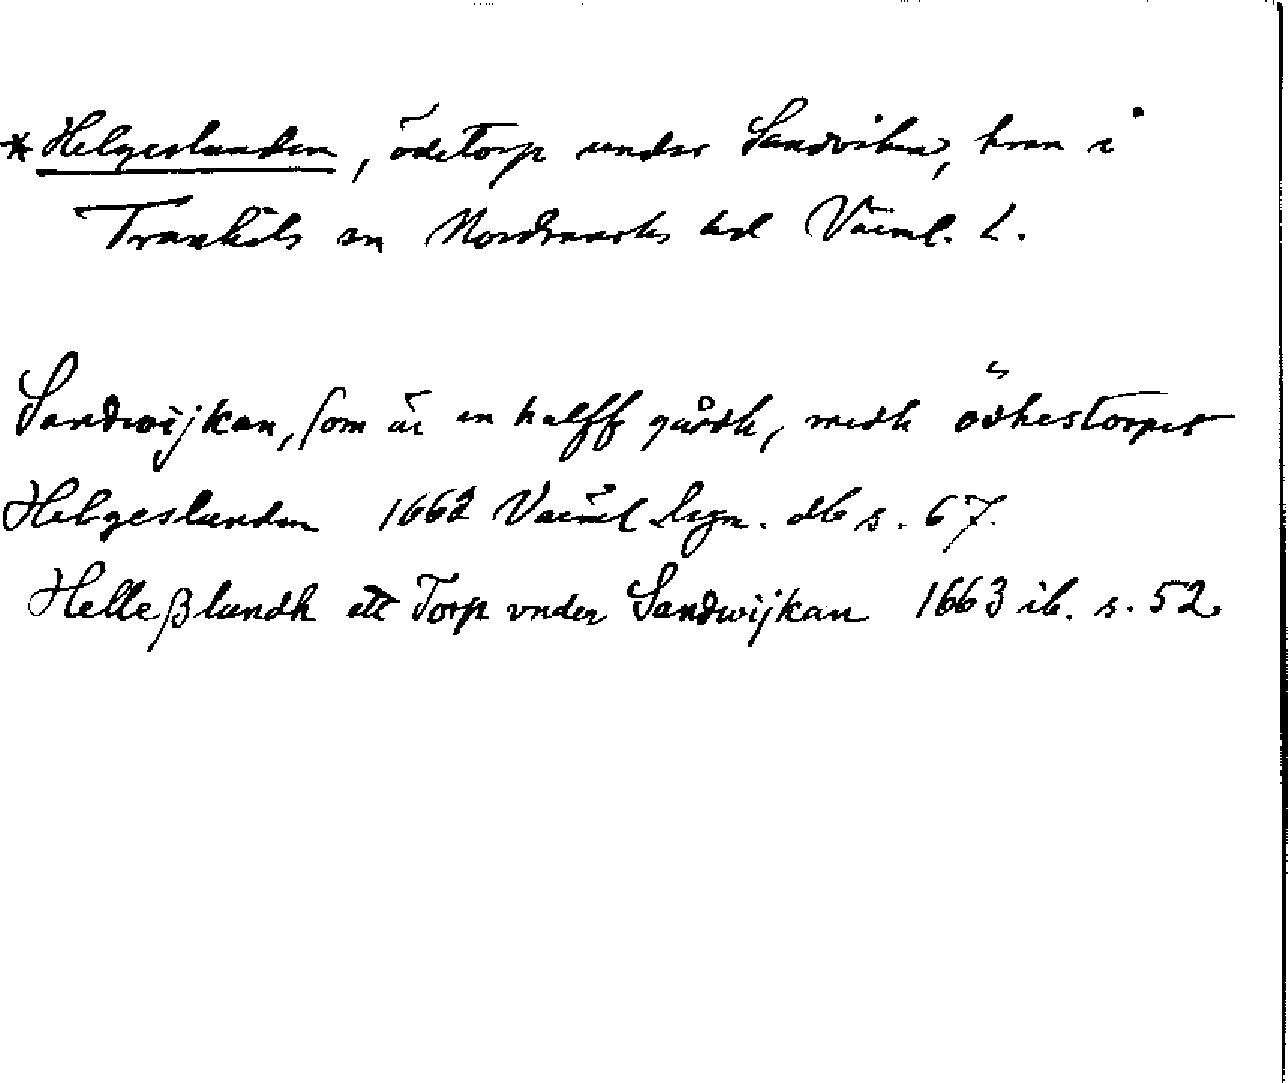 *Helgeslunden, ödetorp under Sandviken, hmn i
Trankils sn Nordmarks hd Värml. l.
Sandwijkan, som är en halff gårdh, medh ödhestorpet
Helgeslunden 1662 Värml lagn. db s. 67.
Helleßlundh ett Torp vnder Sandwijkan 1663 ib. s. 52.